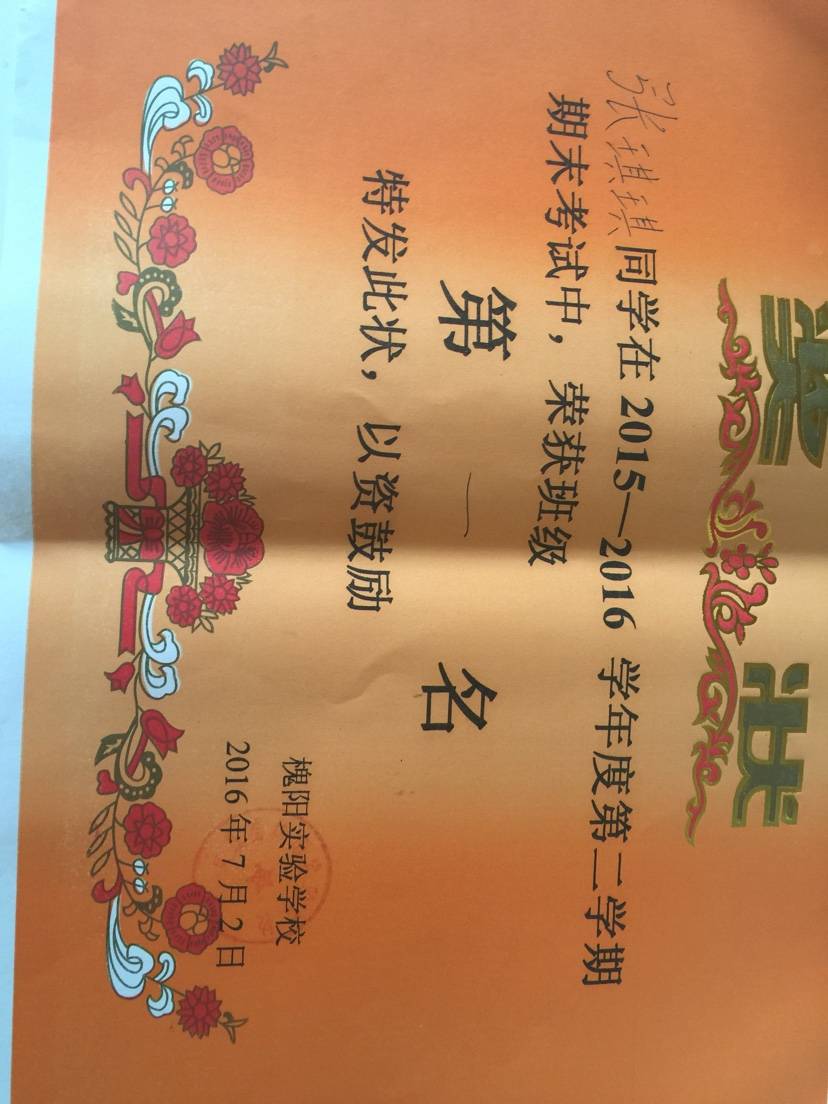 奖 状
张琪琪同学在 2015—2016 学年度第二学期
期末考试中，荣获班级
第 一 名
特发此状，以资鼓励
槐阳实验学校
2016 年 7 月 2 日